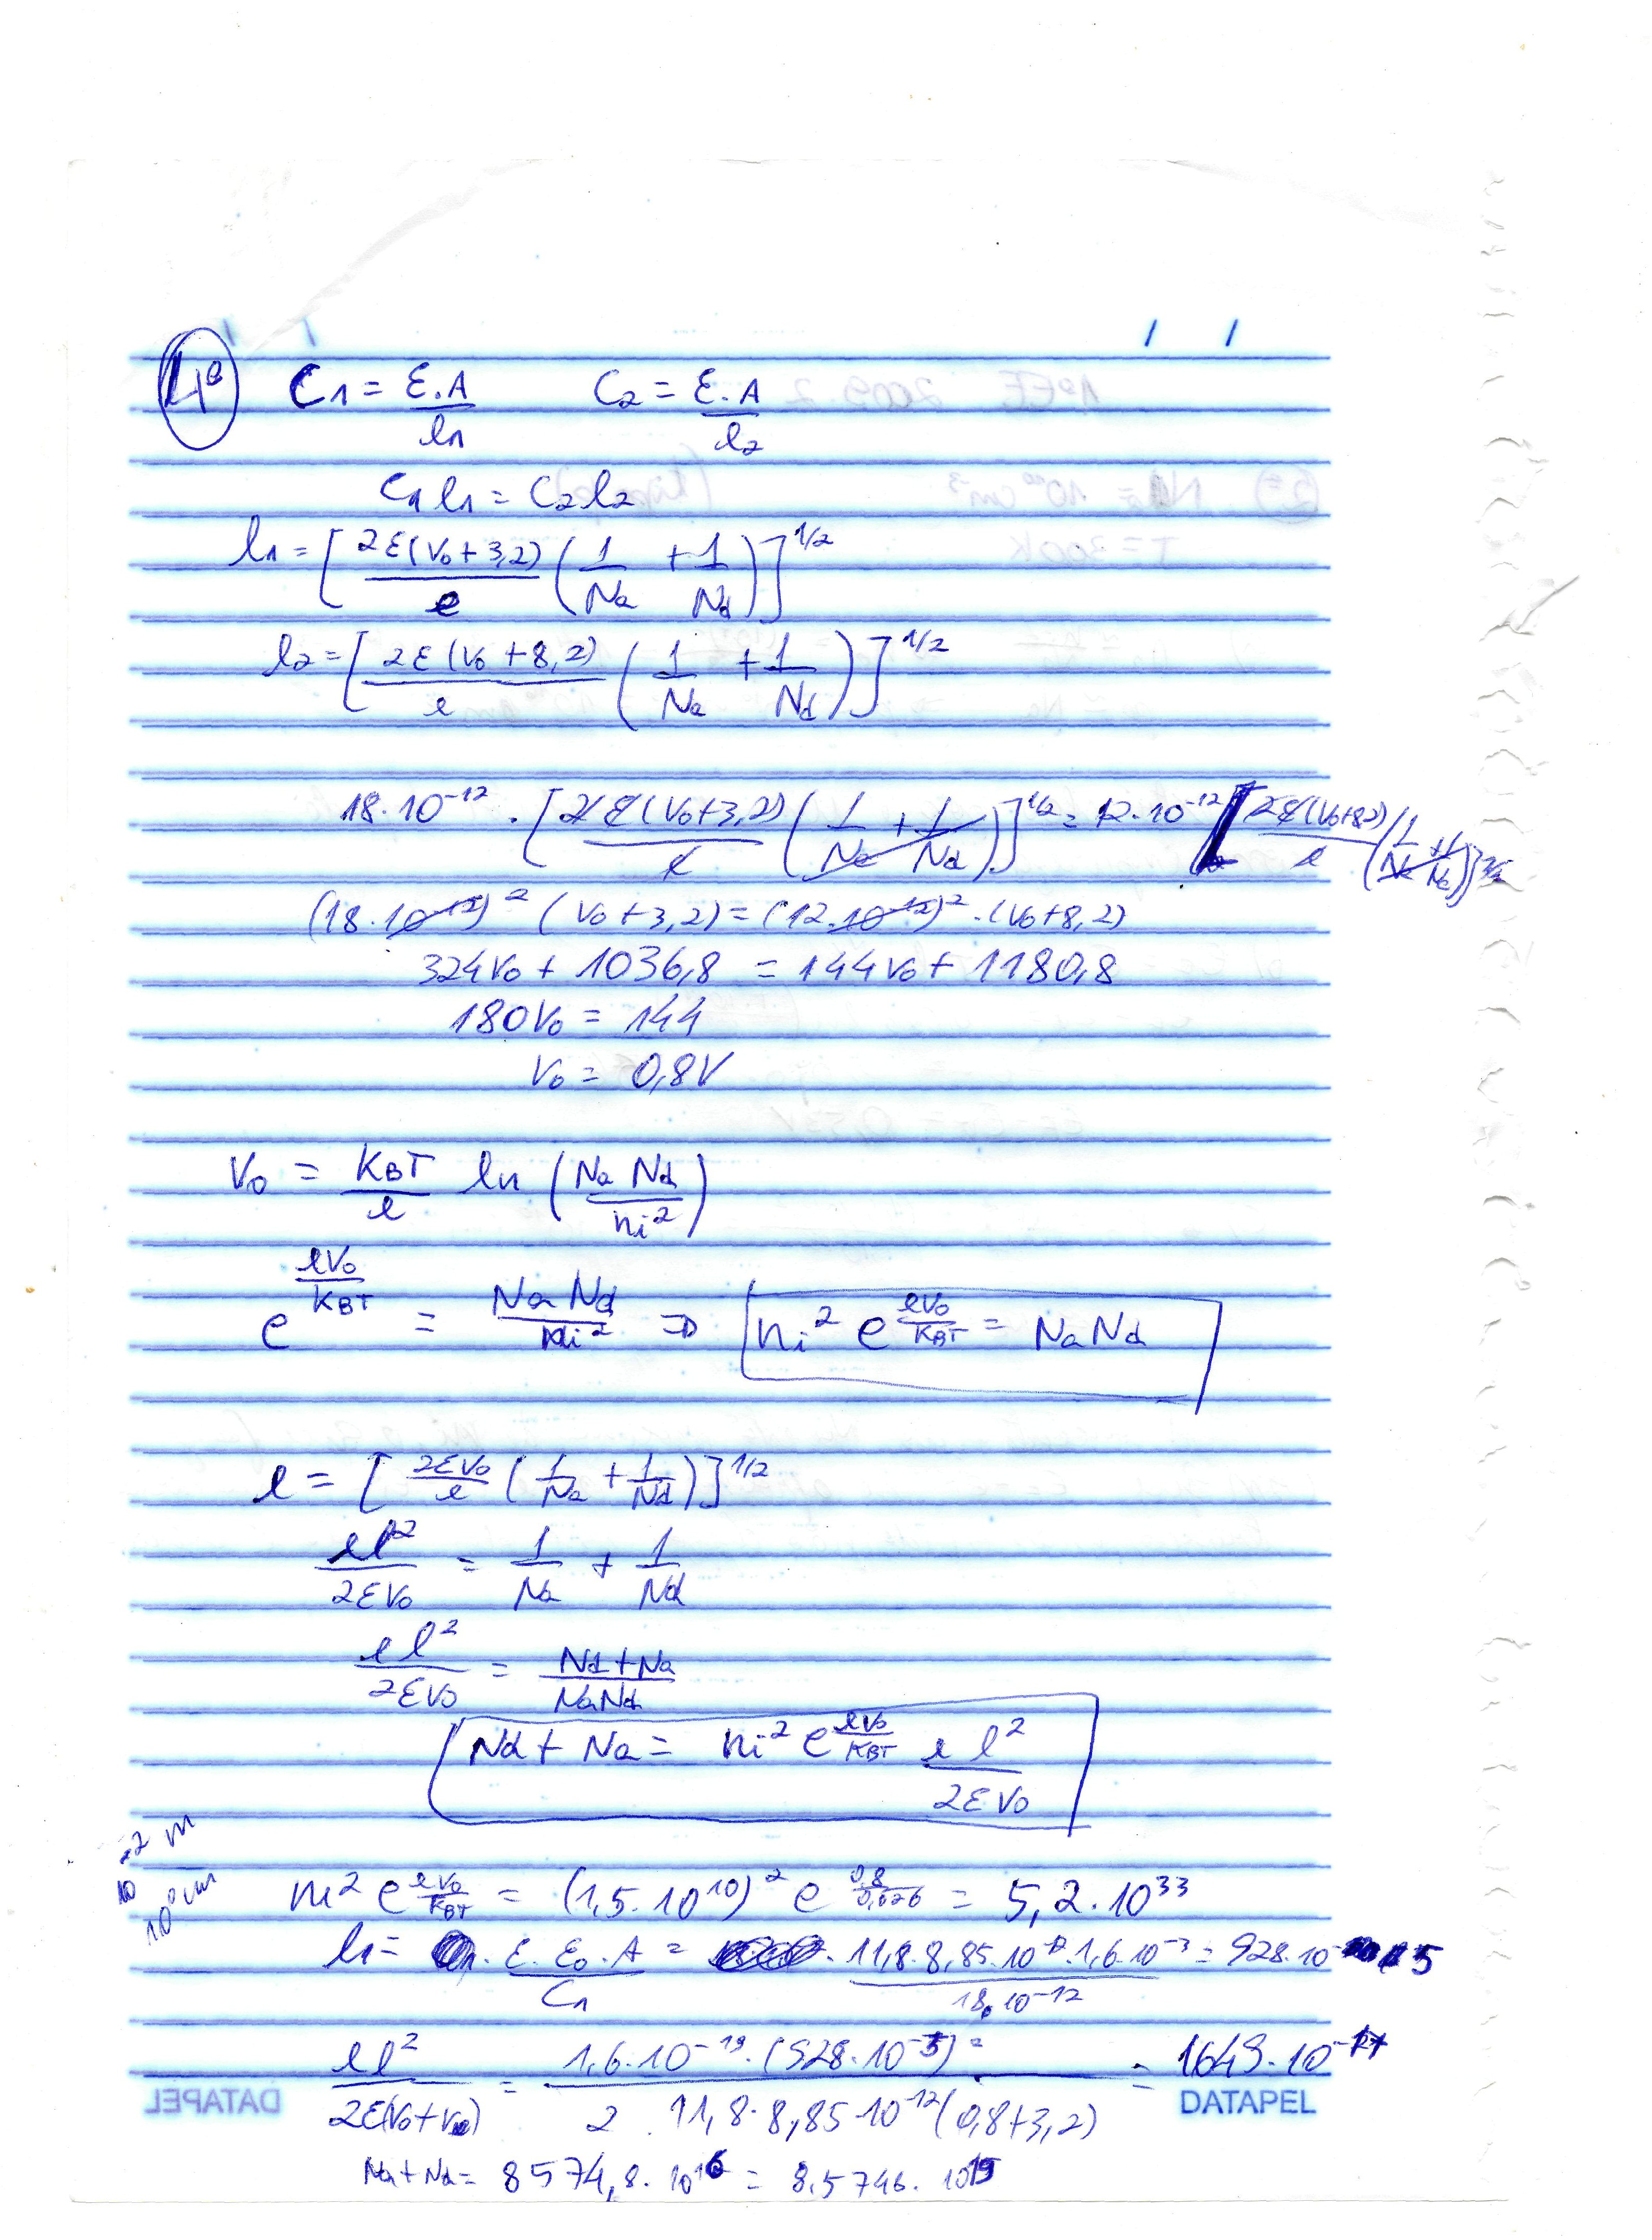 4ª C1 = ε.A/l1 C2 = ε.A/l2
C1 l1 = C2 l2
l1 = [2ε(V0+3,2)/e (1/Na + 1/Nd)]^1/2
l2 = [2ε(V0+8,2)/e (1/Na + 1/Nd)]^1/2
18.10^-12 . [2ε(V0+3,2)/e (1/Na + 1/Nd)]^1/2 = 12.10^-12 [2ε(V0+8,2)/e (1/Na + 1/Nd)]^1/2
(18.10^-12)^2 (V0+3,2) = (12.10^-12)^2 . (V0+8,2)
324V0 + 1036,8 = 144V0 + 1180,8
180V0 = 144
V0 = 0,8V
V0 = KBT/e ln (Na Nd/ni^2)
e^(eV0/KBT) = Na Nd/ni^2 ⇒ ni^2 e^(eV0/KBT) = Na Nd
l = [2εV0/e (1/Na + 1/Nd)]^1/2
el^2/2εV0 = 1/Na + 1/Nd
el^2/2εV0 = Nd+Na/NaNd
Nd + Na = ni^2 e^(eV0/KBT) el^2/2εV0
10^-2 m
10^0 cm
ni^2 e^(eV0/KBT) = (1,5.10^10)^2 e^(0,8/0,026) = 5,2.10^33
l1 = ε.ε0.A/C1 = 11,8.8,85.10 .1,6.10^-3/18.10^-12 = 928.10 5
el^2/2ε(V0+V ) = 1,6.10^-19.(928.10^-5)^2/2 11,8.8,85.10^-12(0,8+3,2) = 1649.10
DATAPEL
Na+Nd = 8574,8.10^16 = 8,5748.10^19